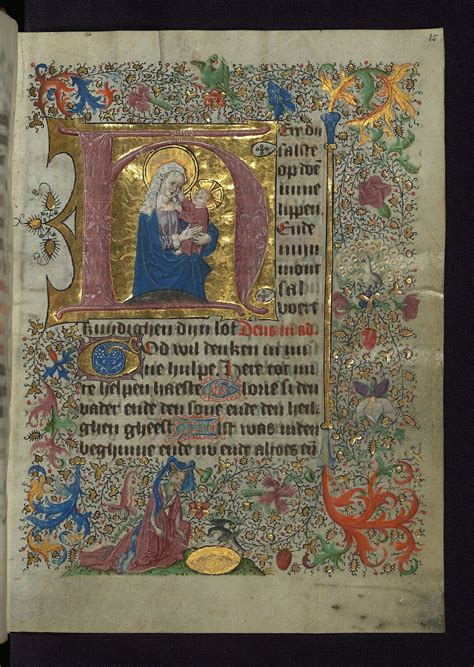 15
HEre du
salste
op doē
mine
lippen.
Ende
mijn
mont
sal
voert
kundighen dijn lof Deus in ad
God wil denken in mi
ne hulpe. Here tot mi
te helpen haeste Glorie si den
vader ende den sone ende den heili
ghen gheest Alst was inden
beghinne ende nv ende altoes eñ